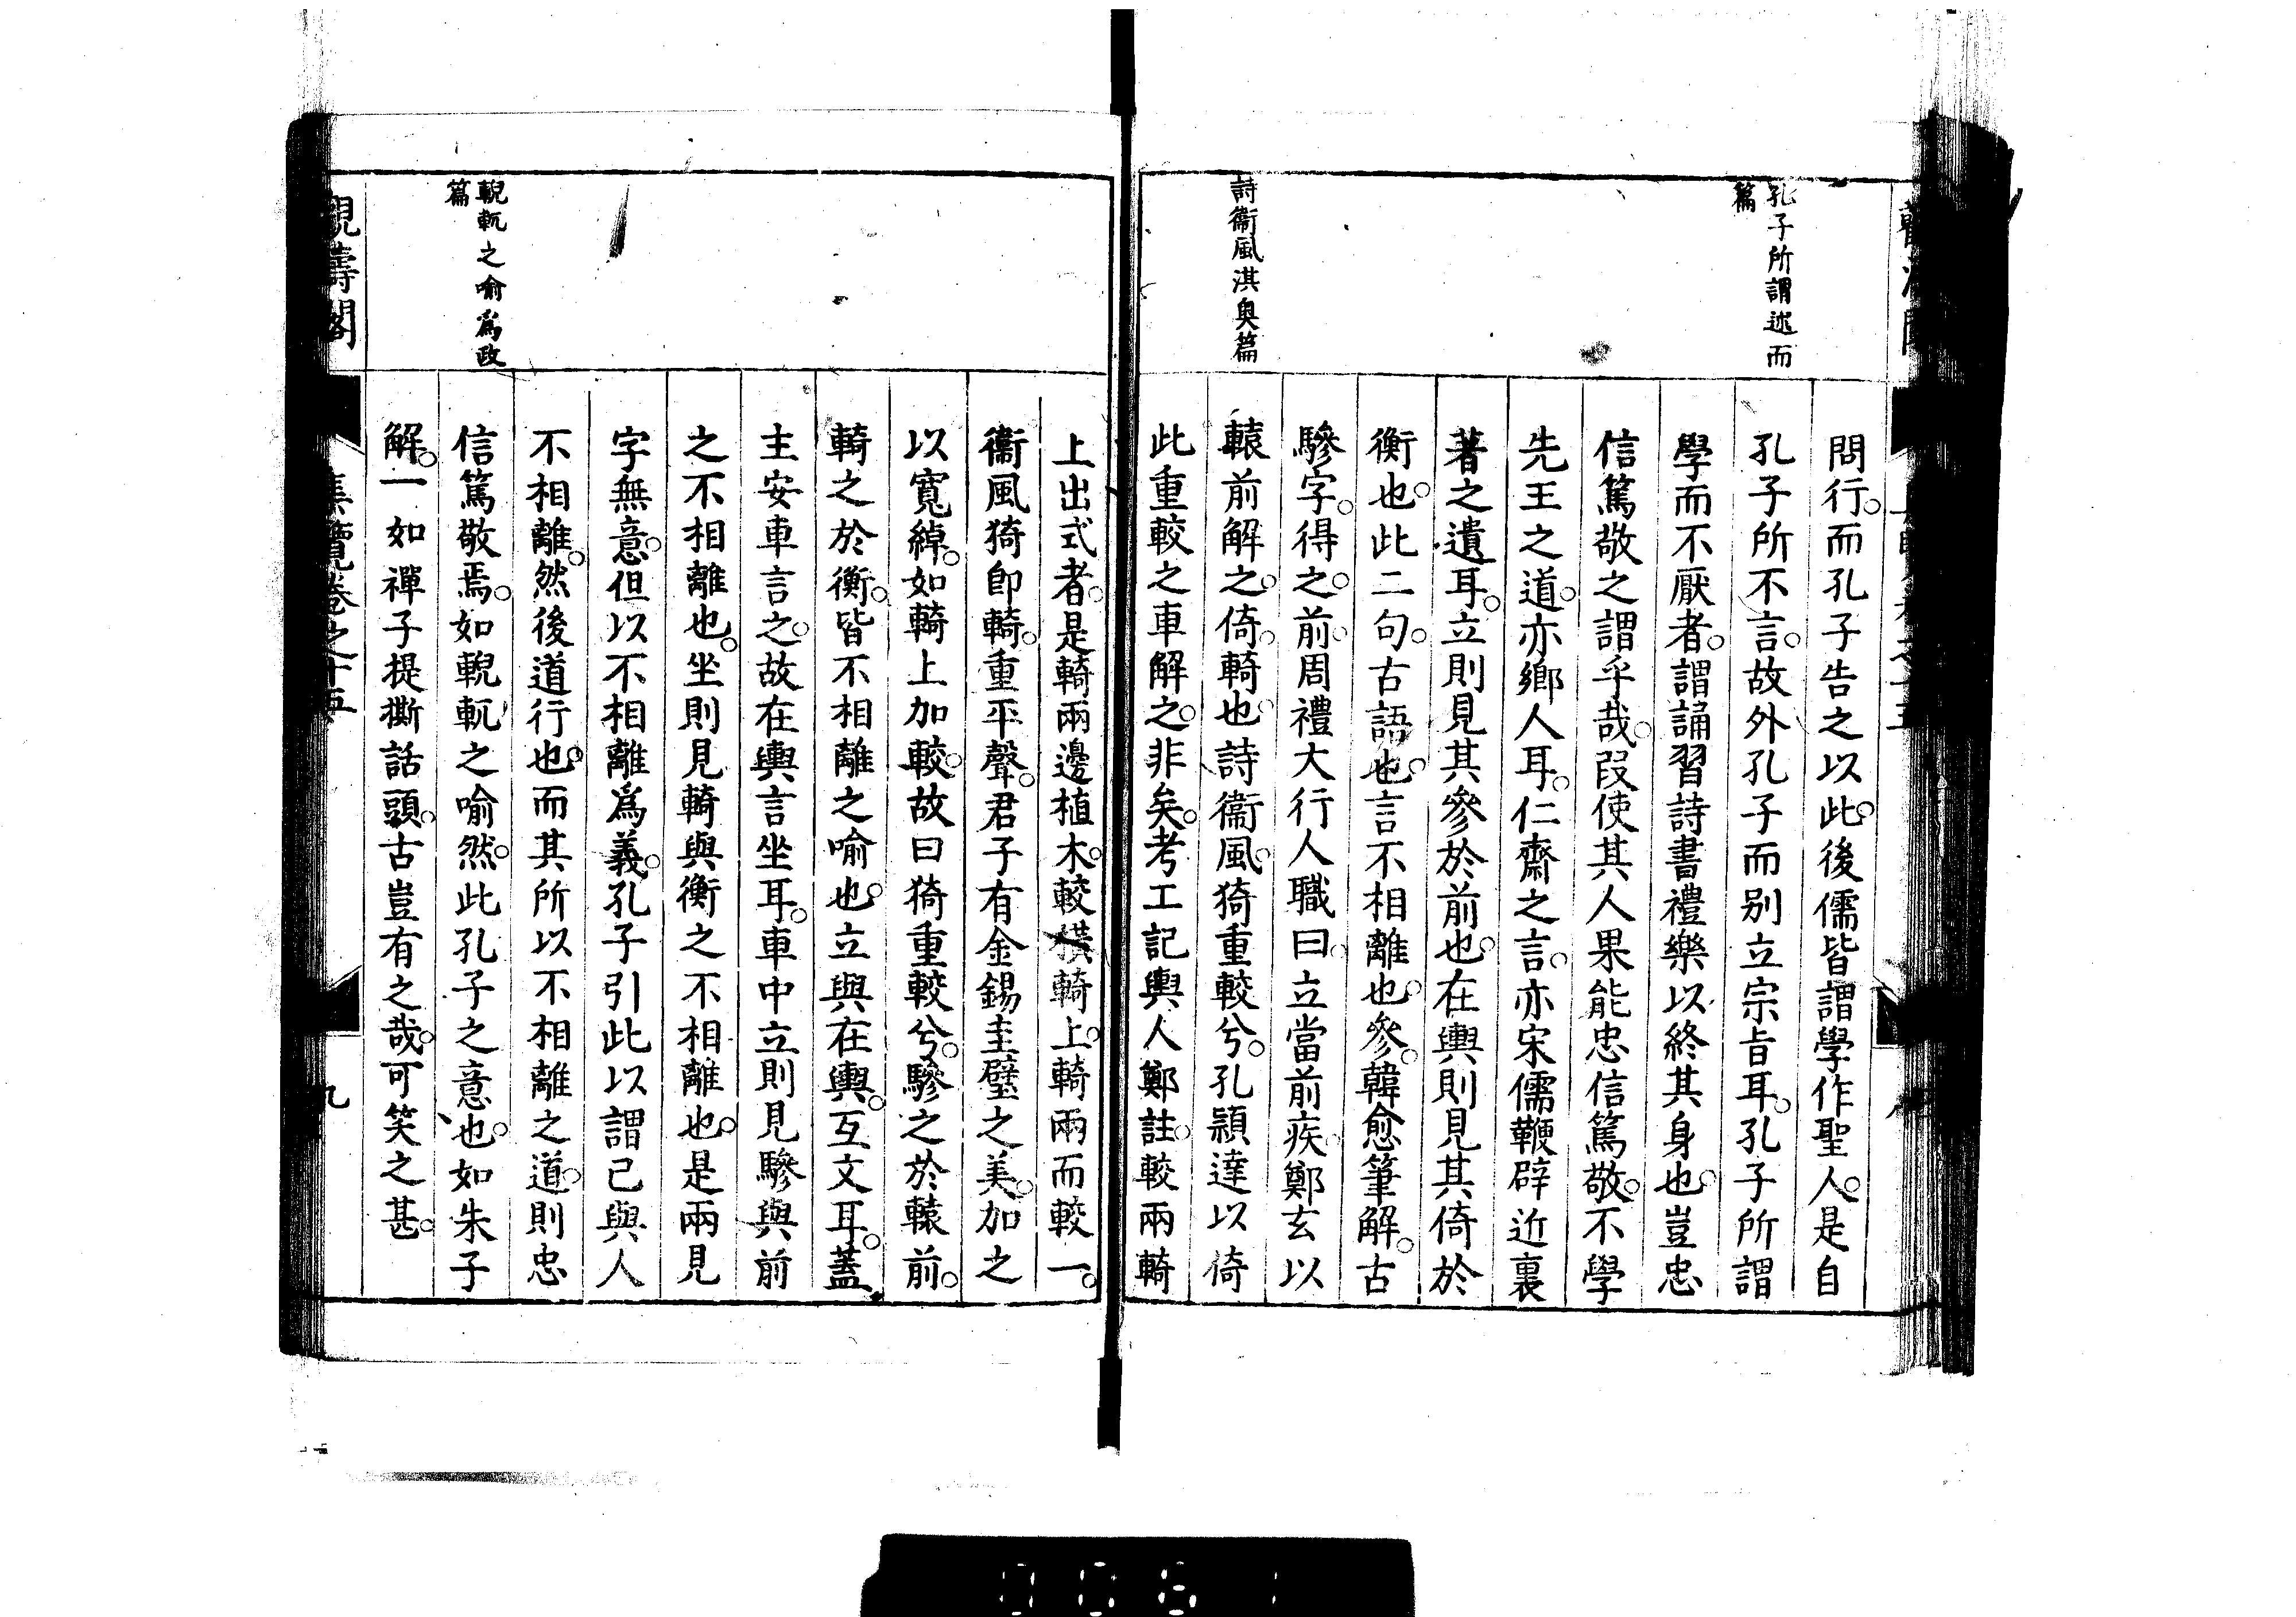 孔子所謂述而
篇
詩衞風淇奥篇
問行而孔子告之以此後儒皆謂學作聖人是自
孔子所不言故外孔子而别立宗旨耳孔子所謂
學而不厭者謂誦習詩書禮樂以終其身也豈忠
信篤敬之謂乎哉叚使其人果能忠信篤敬不學
先王之道亦鄉人耳仁齋之言亦宋儒鞭辟近裏
著之遺耳立則見其參於前也在輿則見其倚於
衡也此二句古語也言不相離也參韓愈筆解古
驂字得之前周禮大行人職曰立當前疾鄭玄以
轅前解之倚輢也詩衞風猗重較兮孔穎達以倚
此重較之車解之非矣考工記輿人鄭註較兩輢
輗軏之喻爲政
篇
上出式者是輢兩邊植木較橫輢上輢兩而較一
衞風猗卽輢重平聲君子有金錫圭璧之美加之
以寬綽如輢上加較故曰猗重較兮驂之於轅前
輢之於衡皆不相離之喻也立與在輿互文耳蓋
主安車言之故在輿言坐耳車中立則見驂與前
之不相離也坐則見輢與衡之不相離也是兩見
字無意但以不相離爲義孔子引此以謂己與人
不相離然後道行也而其所以不相離之道則忠
信篤敬焉如輗軏之喻然此孔子之意也如朱子
解一如禪子提撕話頭古豈有之哉可笑之甚
觀濤閣
集覽卷之十五
九